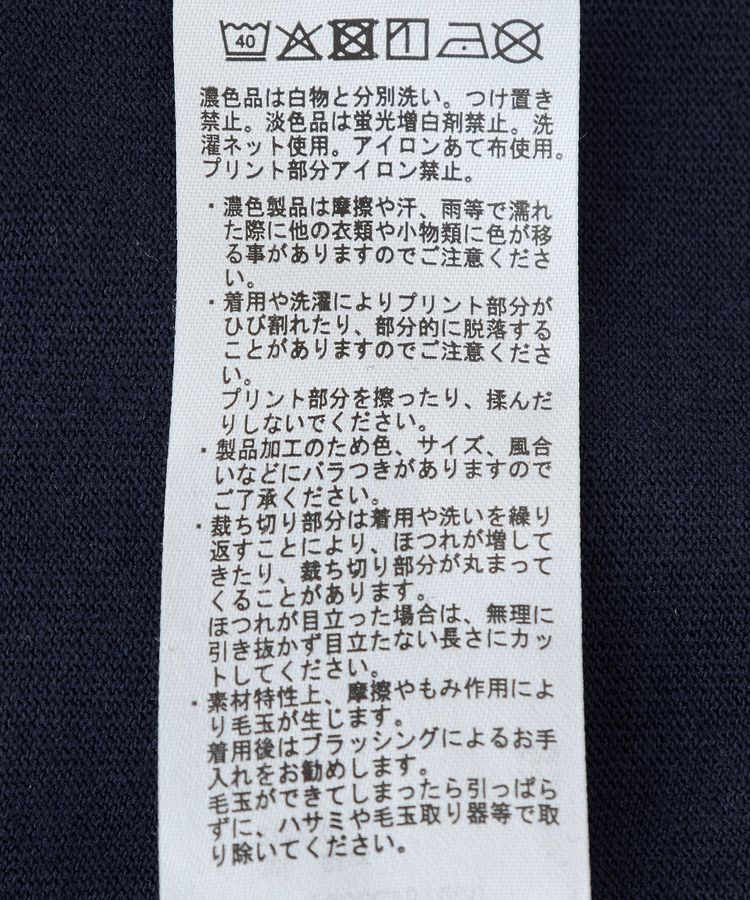 40
濃色品は白物と分別洗い。つけ置き
禁止。淡色品は蛍光増白剤禁止。洗
濯ネット使用。アイロンあて布使用。
プリント部分アイロン禁止。
・濃色製品は摩擦や汗、雨等で濡れ
た際に他の衣類や小物類に色が移
る事がありますのでご注意くださ
い。
・着用や洗濯によりプリント部分が
ひび割れたり、部分的に脱落する
ことがありますのでご注意くださ
い。
プリント部分を擦ったり、揉んだ
りしないでください。
・製品加工のため色、サイズ、風合
いなどにバラつきがありますので
ご了承ください。
・裁ち切り部分は着用や洗いを繰り
返すことにより、ほつれが増して
きたり、裁ち切り部分が丸まって
くることがあります。
ほつれが目立った場合は、無理に
引き抜かず目立たない長さにカッ
トしてください。
・素材特性上、摩擦やもみ作用によ
り毛玉が生じます。
着用後はブラッシングによるお手
入れをお勧めします。
毛玉ができてしまったら引っぱら
ずに、ハサミや毛玉取り器等で取
り除いてください。